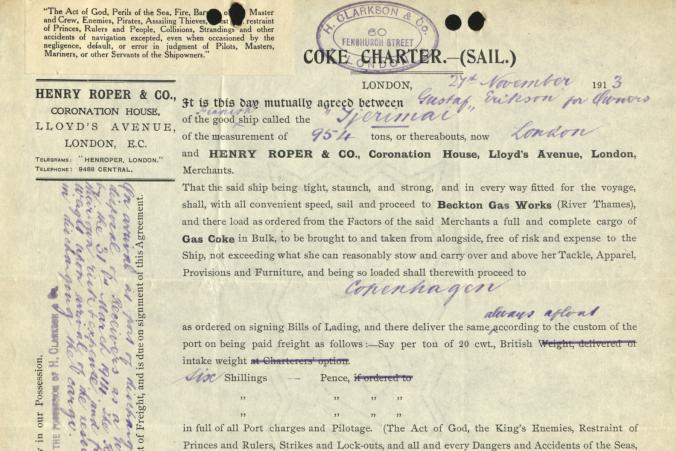 "The Act of God, Perils of the Sea, Fire, Master
and Crew, Enemies, Pirates, Assailing Thieves, restraint
of Princes, Rulers and People, Collisions, Strandings and other
accidents of navigation excepted, even when occasioned by the
negligence, default, or error in judgment of Pilots, Masters,
Mariners, or other Servants of the Shipowners."
H. CLARKSON & Co.
60
FENCHURCH STREET
LONDON
COKE CHARTER.—(SAIL.)
LONDON, 27th November 1913
HENRY ROPER & CO.,
CORONATION HOUSE,
LLOYD'S AVENUE,
LONDON, E.C.
TELEGRAMS: "HENROPER, LONDON."
TELEPHONE: 9488 CENTRAL.
It is this day mutually agreed between Gustaf Erikson for Owners
of the good Finnish ship called the "Tjerimai"
of the measurement of 954 tons, or thereabouts, now London
and HENRY ROPER & CO., Coronation House, Lloyd's Avenue, London,
Merchants.
That the said ship being tight, staunch, and strong, and in every way fitted for the voyage,
shall, with all convenient speed, sail and proceed to Beckton Gas Works (River Thames),
and there load as ordered from the Factors of the said Merchants a full and complete cargo of
Gas Coke in Bulk, to be brought to and taken from alongside, free of risk and expense to the
Ship, not exceeding what she can reasonably stow and carry over and above her Tackle, Apparel,
Provisions and Furniture, and being so loaded shall therewith proceed to
Copenhagen
always afloat
as ordered on signing Bills of Lading, and there deliver the same according to the custom of the
port on being paid freight as follows:—Say per ton of 20 cwt., British Weight, delivered or
intake weight at Charterers' option.
six Shillings — Pence, if ordered to
" " " "
" " " "
in full of all Port charges and Pilotage. (The Act of God, the King's Enemies, Restraint of
Princes and Rulers, Strikes and Lock-outs, and all and every Dangers and Accidents of the Seas,
On arrival at port of discharge
disposal Receivers as a
by the 31st March 1914. The
risk & expense and
upon arrival of the
in discharging the cargo.
of Freight, and is due on signment of this Agreement.
THE POSSESSION OF H. CLARKSON
in our Possession.